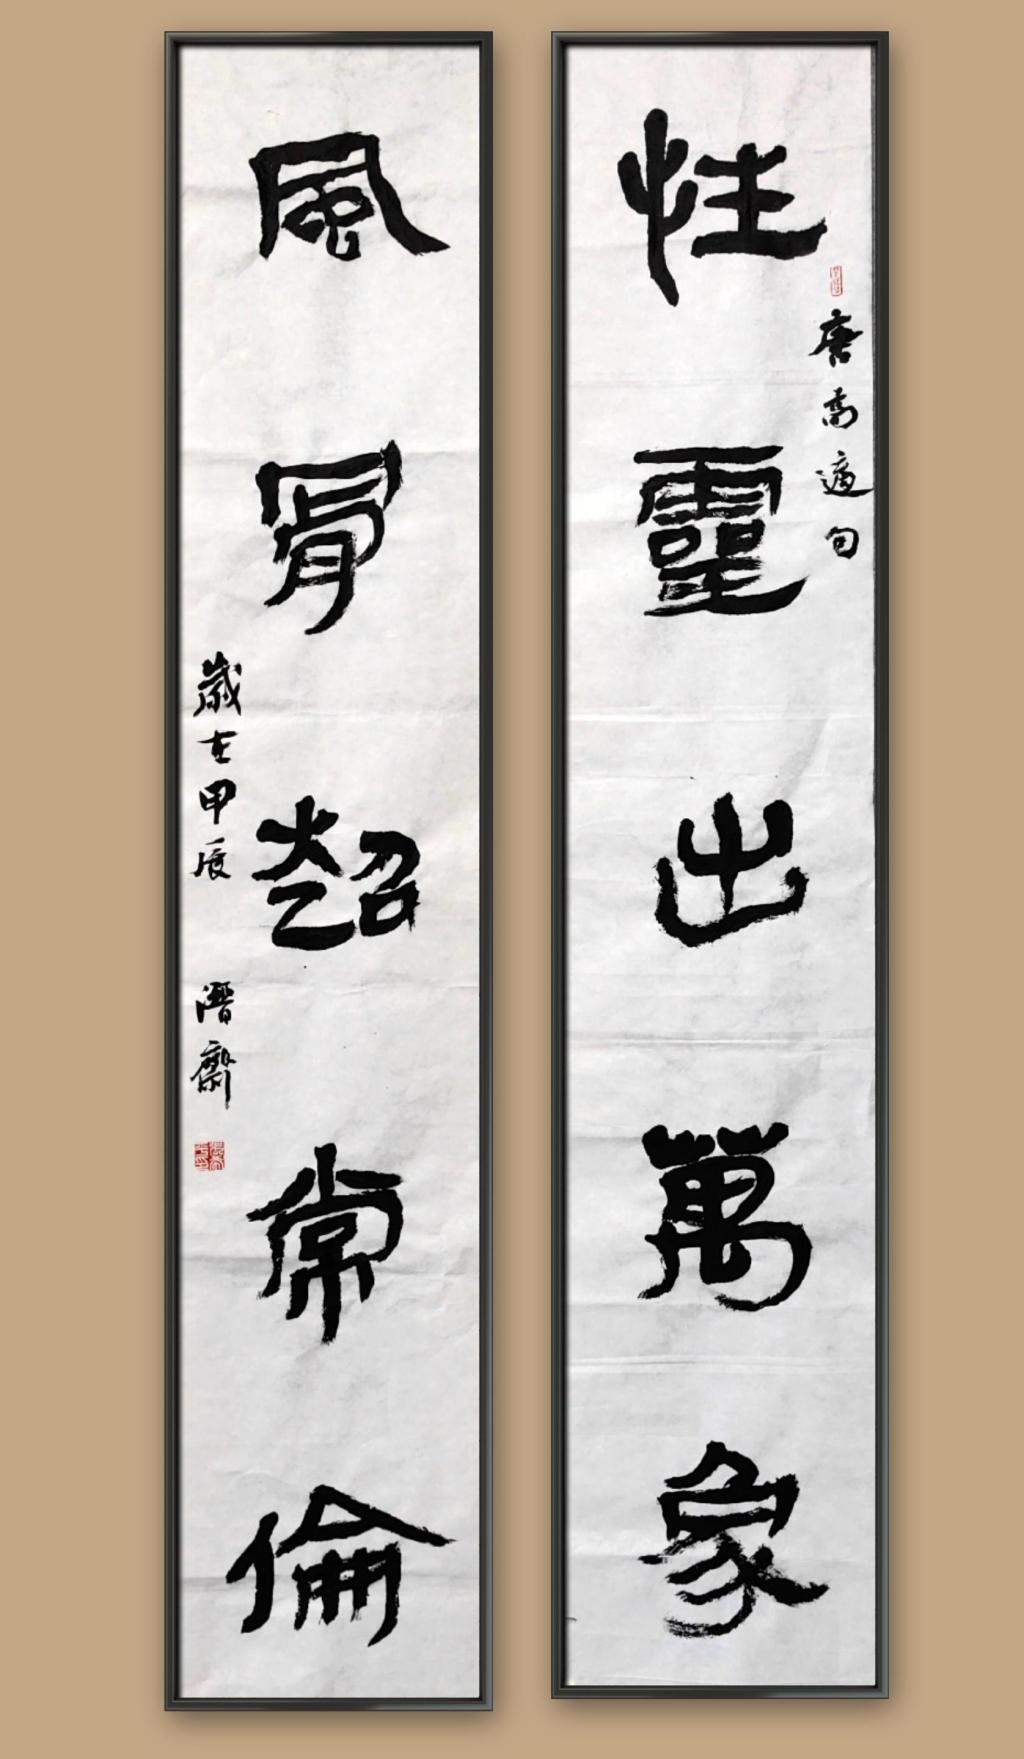 性靈出萬象
唐高適句
風骨超常倫
歲在甲辰 潛齋